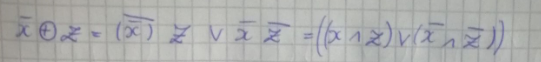 x̄ ⊕ z = (x̿) z ∨ x̄ z̄ = ((x ∧ z) ∨ (x̄ ∧ z̄))